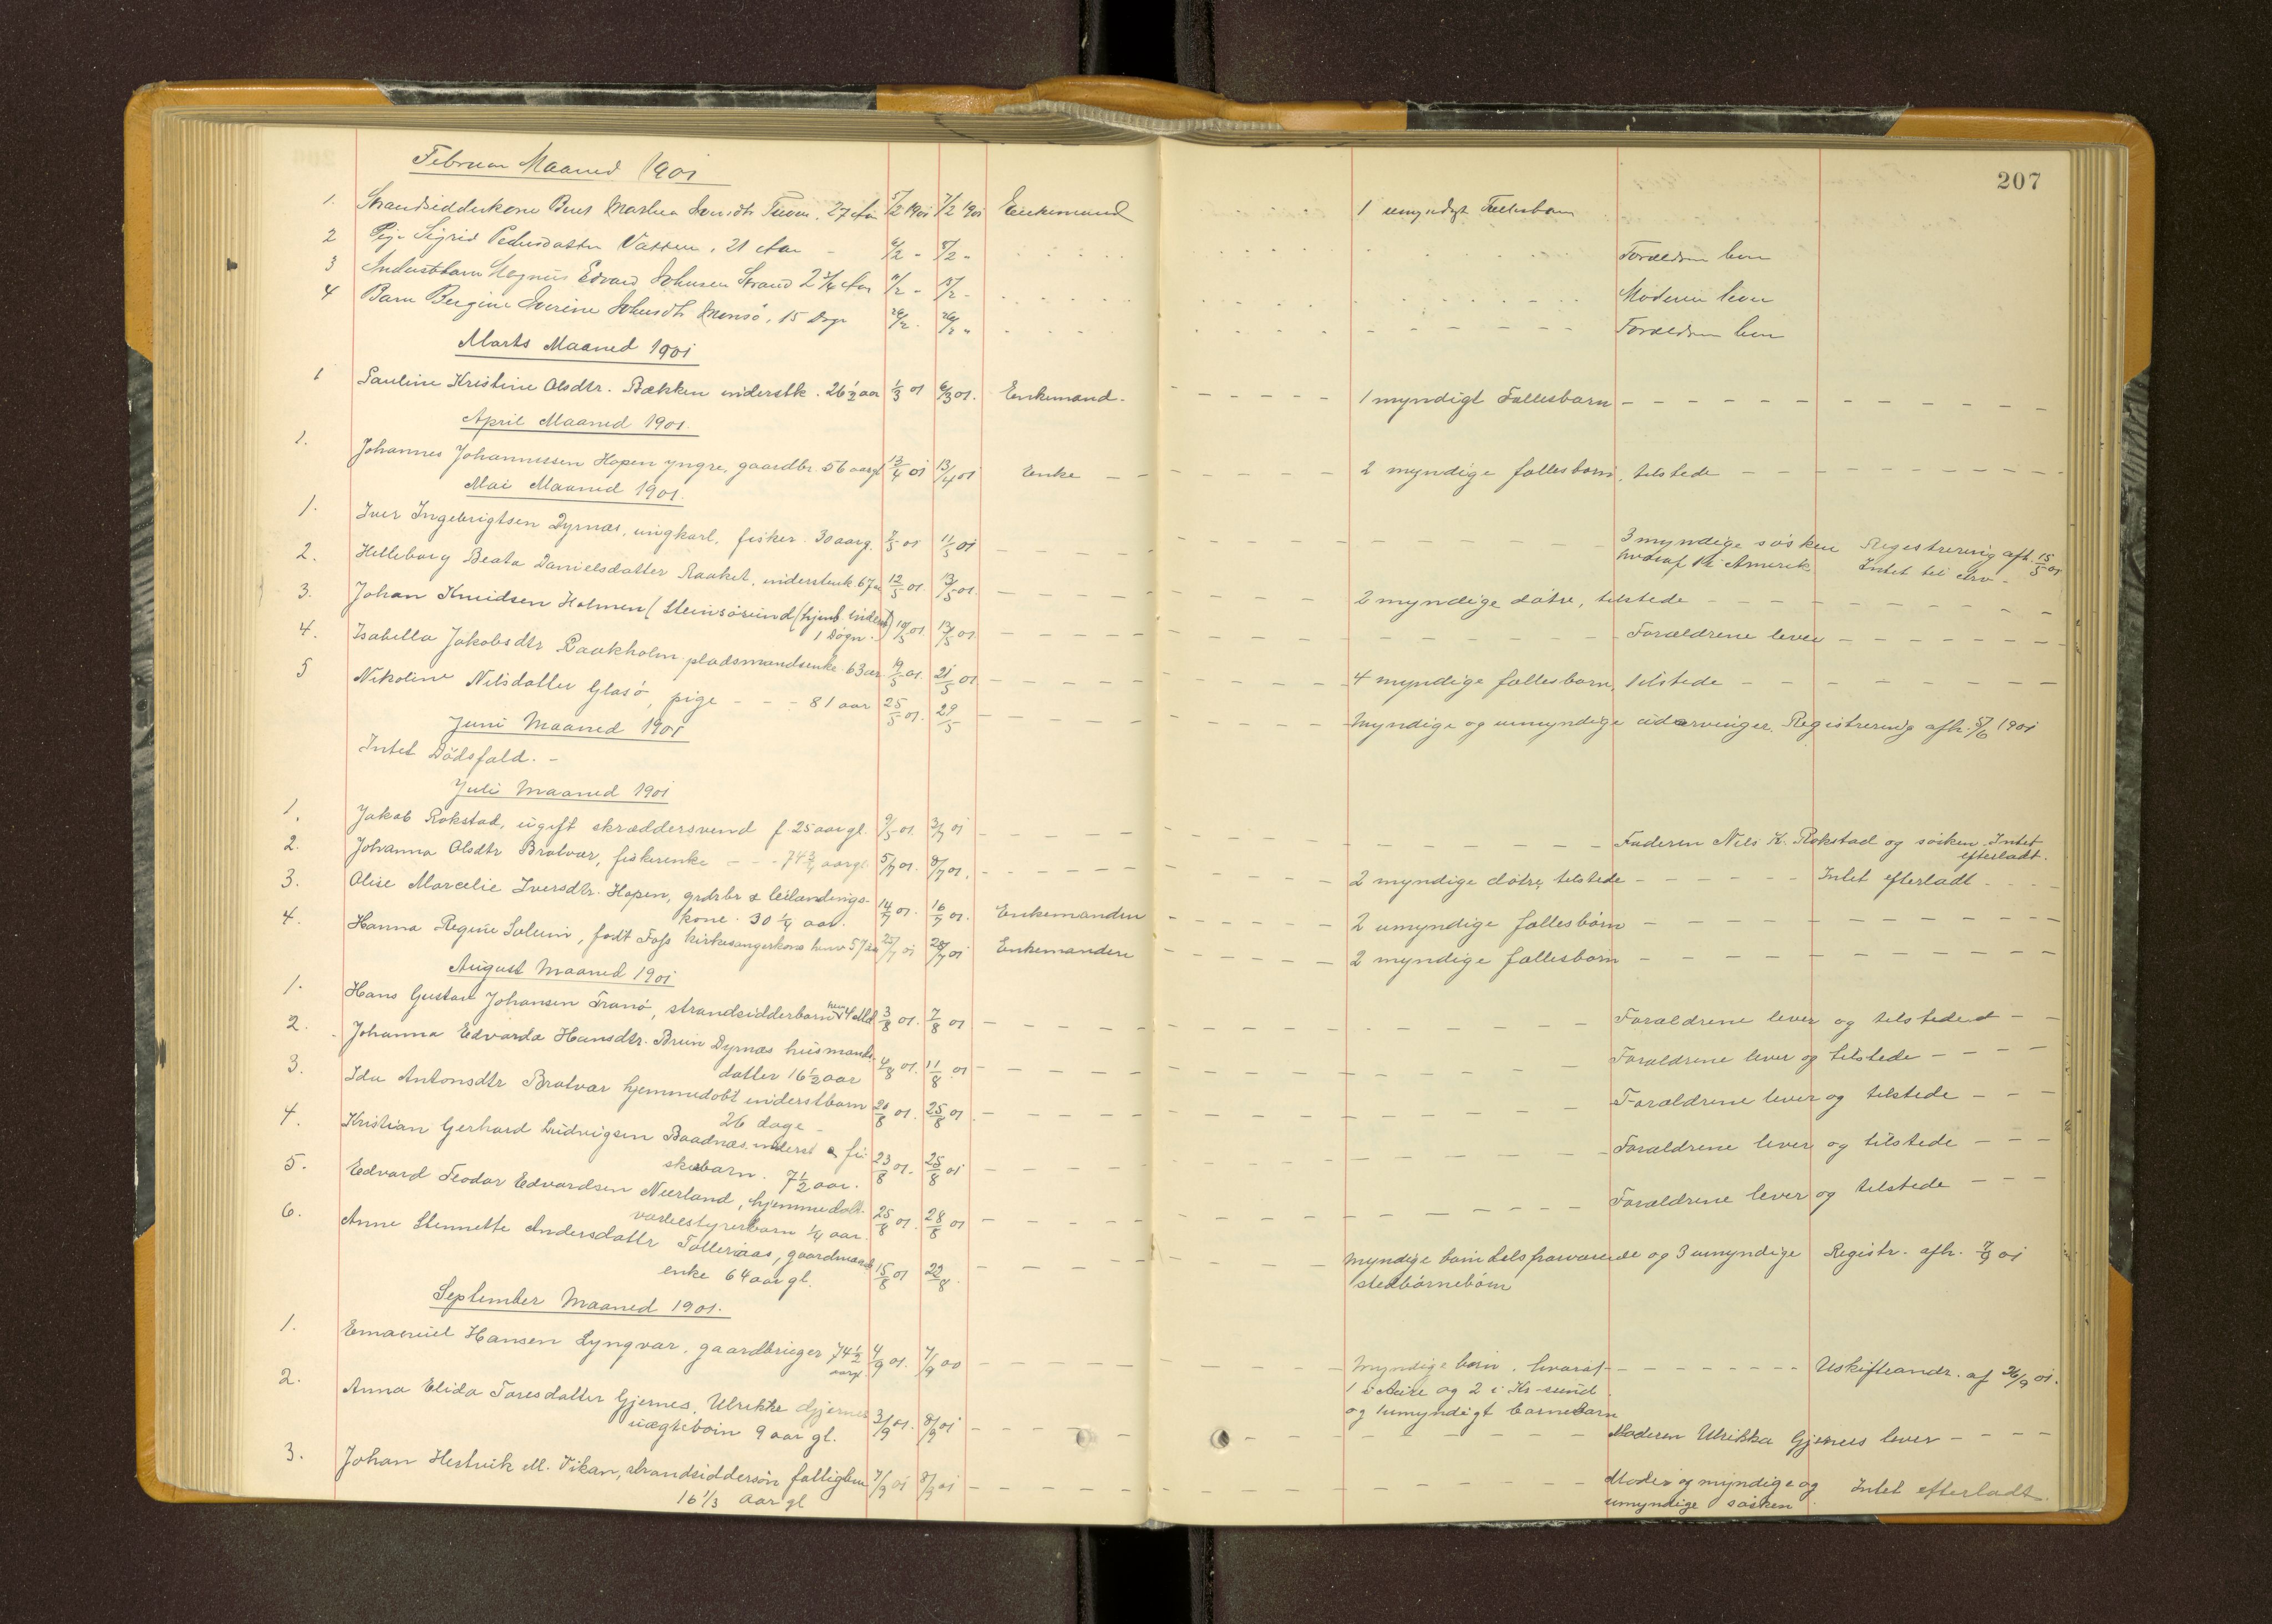 207
Februar Maaned 1901
1. Strandsidderkone Berit Marthea 27 Aar 5/2 1901 7/2 1901 Enkemand 1 umyndigt Fællesbarn
2 Pige Sigrid Pedersdatter Vatten, 21 Aar - 6/2 - 8/2 - Forældrene lever
3 Inderstbarn Magnus Edvard Johnsen Strand 2 3/4 Aar 11/2 - 15/2 - Moderen lever
4 Barn Bergine Iverine Johnsdtr 15 Dage 24/2. 26/2 " Forældrene lever
Marts Maaned 1901
1 Pauline Kristine Olsdtr. Bækken inderstk. 26 1/2 aar 1/3 01 6/3 01. Enkemand. - - - - - 1 myndigt Fællesbarn - - - - - - - - - -
April Maaned 1901.
1. Johannes Johannessen Hopen yngre, gaardbr. 56 aargl 13/4 01 13/4 01 Enke - - - - - - - 2 myndige fællesbarn, tilstede - - - - - - - - -
Mai Maaned 1901.
1. Iver Ingebrigtsen Dyrnæs, ungkarl, fisker. 30 aarg. 7/5 01 11/5 01 - - - - - - 3 myndige søsken Registrering afh. 15/5 01
hvoraf 1 i Amerik. Intet til Arv -
2. Helleborg Beata Danielsdatter Raaket, inderstenk. 67 a 12/5 01. 13/5 01. - - - - - - 2 myndige døtre, tilstede - - - - - - - - -
3. Johan Knudsen Holmen (Steinsøsund (hjemb. inderst)
1 Døgn. 10/5 01. 13/5 01 - - - - - - Forældrene lever - - - - - - -
4. Isabella Jakobsdtr Raakholm pladsmandsenke 63 aar 19/5 01. 21/5 01 - - - - - - 4 myndige fællesbarn, tilstede - - - - - - - -
5 Nikoline Nilsdatter Glasø, pige - - - 81 aar 25/5 01. 29/5 - - - - - - Myndige og umyndige udarvinger. Registrering afh. 5/6 1901
Juni Maaned 1901
Intet Dødsfald. -
Juli Maaned 1901
1. Jakob Rokstad, ugift skræddersvend f. 25 aar gl. 9/5 01. 3/7 01 - - - - - - Faderen Nils K. Rokstad og søsken. Intet
efterladt.
2. Johanna Olsdtr Bratvær, fiskerenke - - - 74 3/4 aargl 5/7 01. 8/7 01. - - - - - - 2 myndige døtre, tilstede - - - - - - Intet efterladt - - - -
3. Olise Marcelie Iversdtr. Hopen, grdbr & leilændings-
kone. 30 1/4 aar. 14/7 01. 16/7 01. Enkemanden - - - - - - 2 umyndige fællesbørn - - - - - - - - -
4. Hanna Regine Solem, født Foss kirkesangerkone 57 aar 25/7 01 28/7 01 Enkemanden - - - - - - 2 myndige fællesbørn - - - - - - - - -
August Maaned 1901
1. Hans Gustav Johansen Tranø, strandsidderbarn 4 Md. 3/8 01. 7/8 01 - - - - - - Forældrene lever og tilstede - -
2. Johanna Edvarda Hansdtr. Brun Dyrnæs husmands-
datter 16 1/2 aar 4/8 01. 11/8 01 - - - - - - Forældrene lever og tilstede - - - -
3. Ida Antonsdtr Bratvær hjemmedøbt inderstbarn
26 dage - 20/8 01. 25/8 01 - - - - - - Forældrene lever og tilstede - - -
4. Kristian Gerhard Ludvigsen Baadnæs inderst & fi-
skerbarn. 7 1/2 aar. 23/8 01. 25/8 01 - - - - - - Forældrene lever og tilstede - - -
5. Edvard Teodor Edvardsen Neerland, hjemmedøbt
barn 1/4 aar. 25/8 01. 28/8 01 - - - - - - Forældrene lever og tilstede - - -
6. Anne Stennette Andersdattr Talleraas, gaardmands
enke 64 aar gl. 15/8 01 22/8. - - - - - - Myndige børn dels fraværende og 3 umyndige Registr. afh. 7/9 01
stedbørnebørn
September Maaned 1901.
1. Emanuel Hansen Lyngvær, gaardbruger 74 1/2
aargl 4/9 01. 7/9 00 - - - - - - Myndige børn. hvoraf - - - - - - - Uskifteandr. af 26/9 01.
1 i Aure og 2 i Kr-sund
og 1 umyndigt barnebarn
2. Anna Elida Toresdatter Gjernes, Ulrikke Gjernes
uægtebørn 9 aar gl. 3/9 01. 8/9 01 - - - - - - Moderen Ulrikka Gjernes lever - - - -
3. Johan Hestvik M. Vikan, strandsiddersøn fattiglem
16 1/3 Aar gl 7/9 01 8/9 01 - - - - - - Moder og myndige og Intet efterladt.
umyndige søsken.